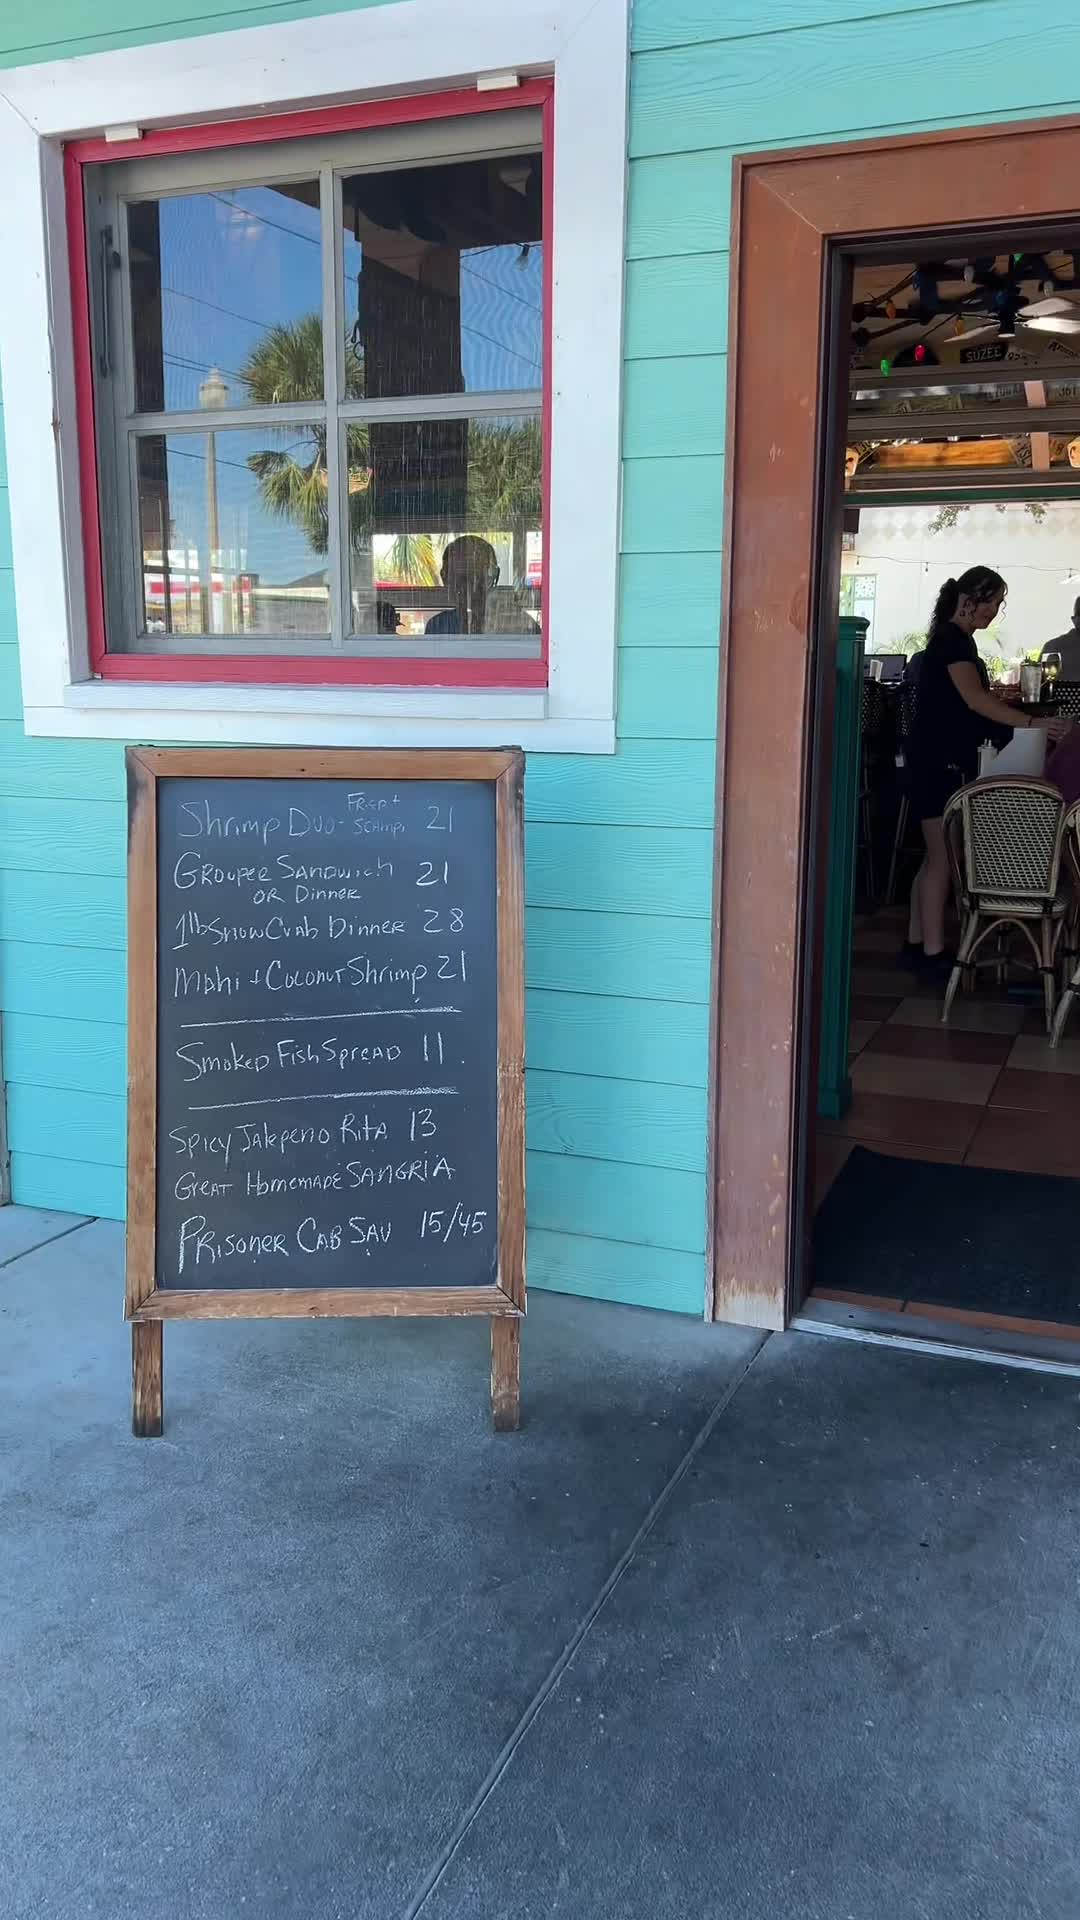 SUZEE
Shrimp Duo - Fried + Scampi 21
Grouper Sandwich 21
or Dinner
1lb Snow Crab Dinner 28
Mahi + Coconut Shrimp 21
Smoked Fish Spread 11.
Spicy Jalepeno Rita 13
Great Homemade SANGRIA
PRisoner Cab Sav 15/45